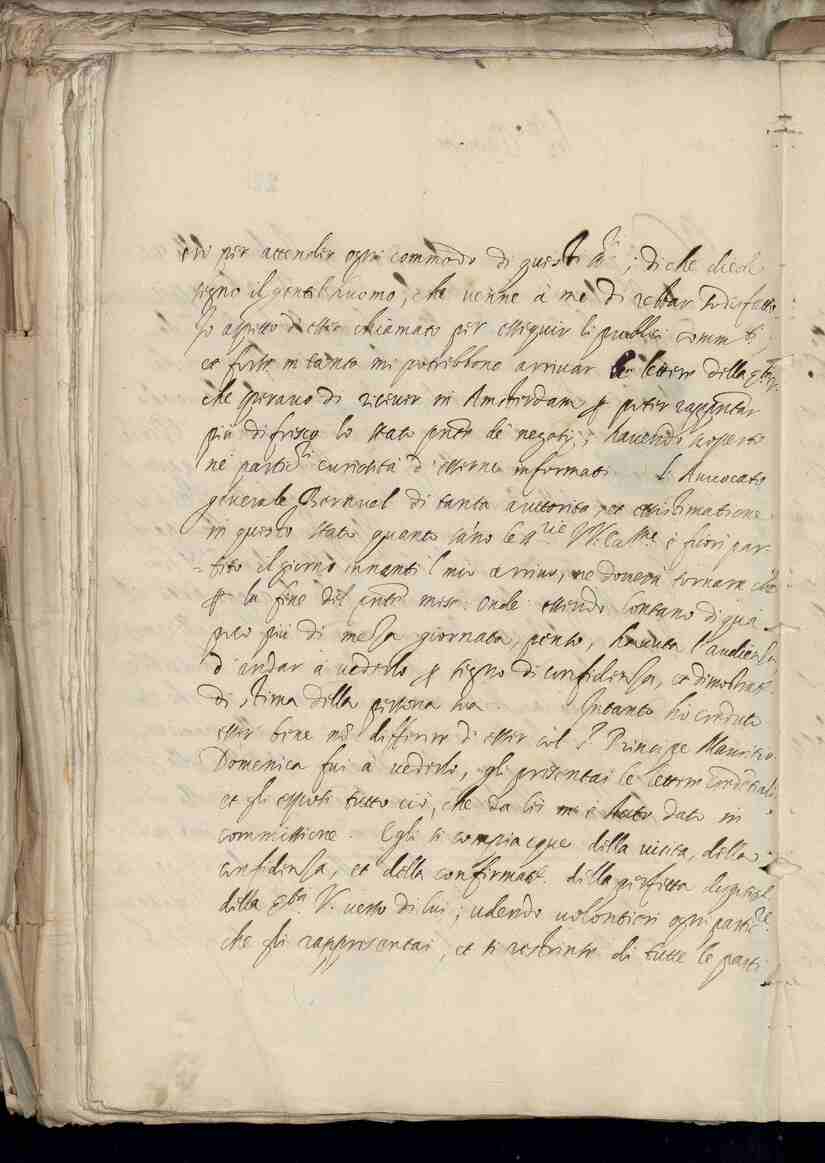 ero per attender ogni commodo di questi ss.ri; di che diede
segno il gentilhuomo, che venne à me di restar sodisfatto
Io aspetto d'esser chiamato per esseguir li publici comm.ti
et forse in tanto mi potrebbono arrivar le lettere della
che speravo di ricever in Amsterdam p poter rappntar
più di fresco lo stato pnte de negotij; havendo scoperto
ne partic.ri curiosità d'esserne informati. L'Avvocato
generale Bernvel di tanta auttorità, et essistimatione
in questo stato quanto sano le V.V. Ecc.me è fuori par-
-tito il giorno innanti l mio arrivo, ne doverà tornar che
p la fine del pnte mese. Onde essendo lontano di qui
poco più di meza giornata, penso, havuta l'audienza
d'andar à vederlo p segno di confidenza, et dimostrat.e
di stima della persona sua. Intanto hò creduto
esser bene nõ differir d'esser col S.r Principe Mauritio.
Domenica fui à vederlo, gli presentai le lettere credentiali
et gli esposi tutto ciò, che da lei m'è stato dato in
commissione. Egli si compiacque della visita, della
confidenza, et della confirmat.e della perfetta
della V. verso di lui; udendo volontieri ogni partic.re
che gli rappresentai, et si restrinse di tutte le parti